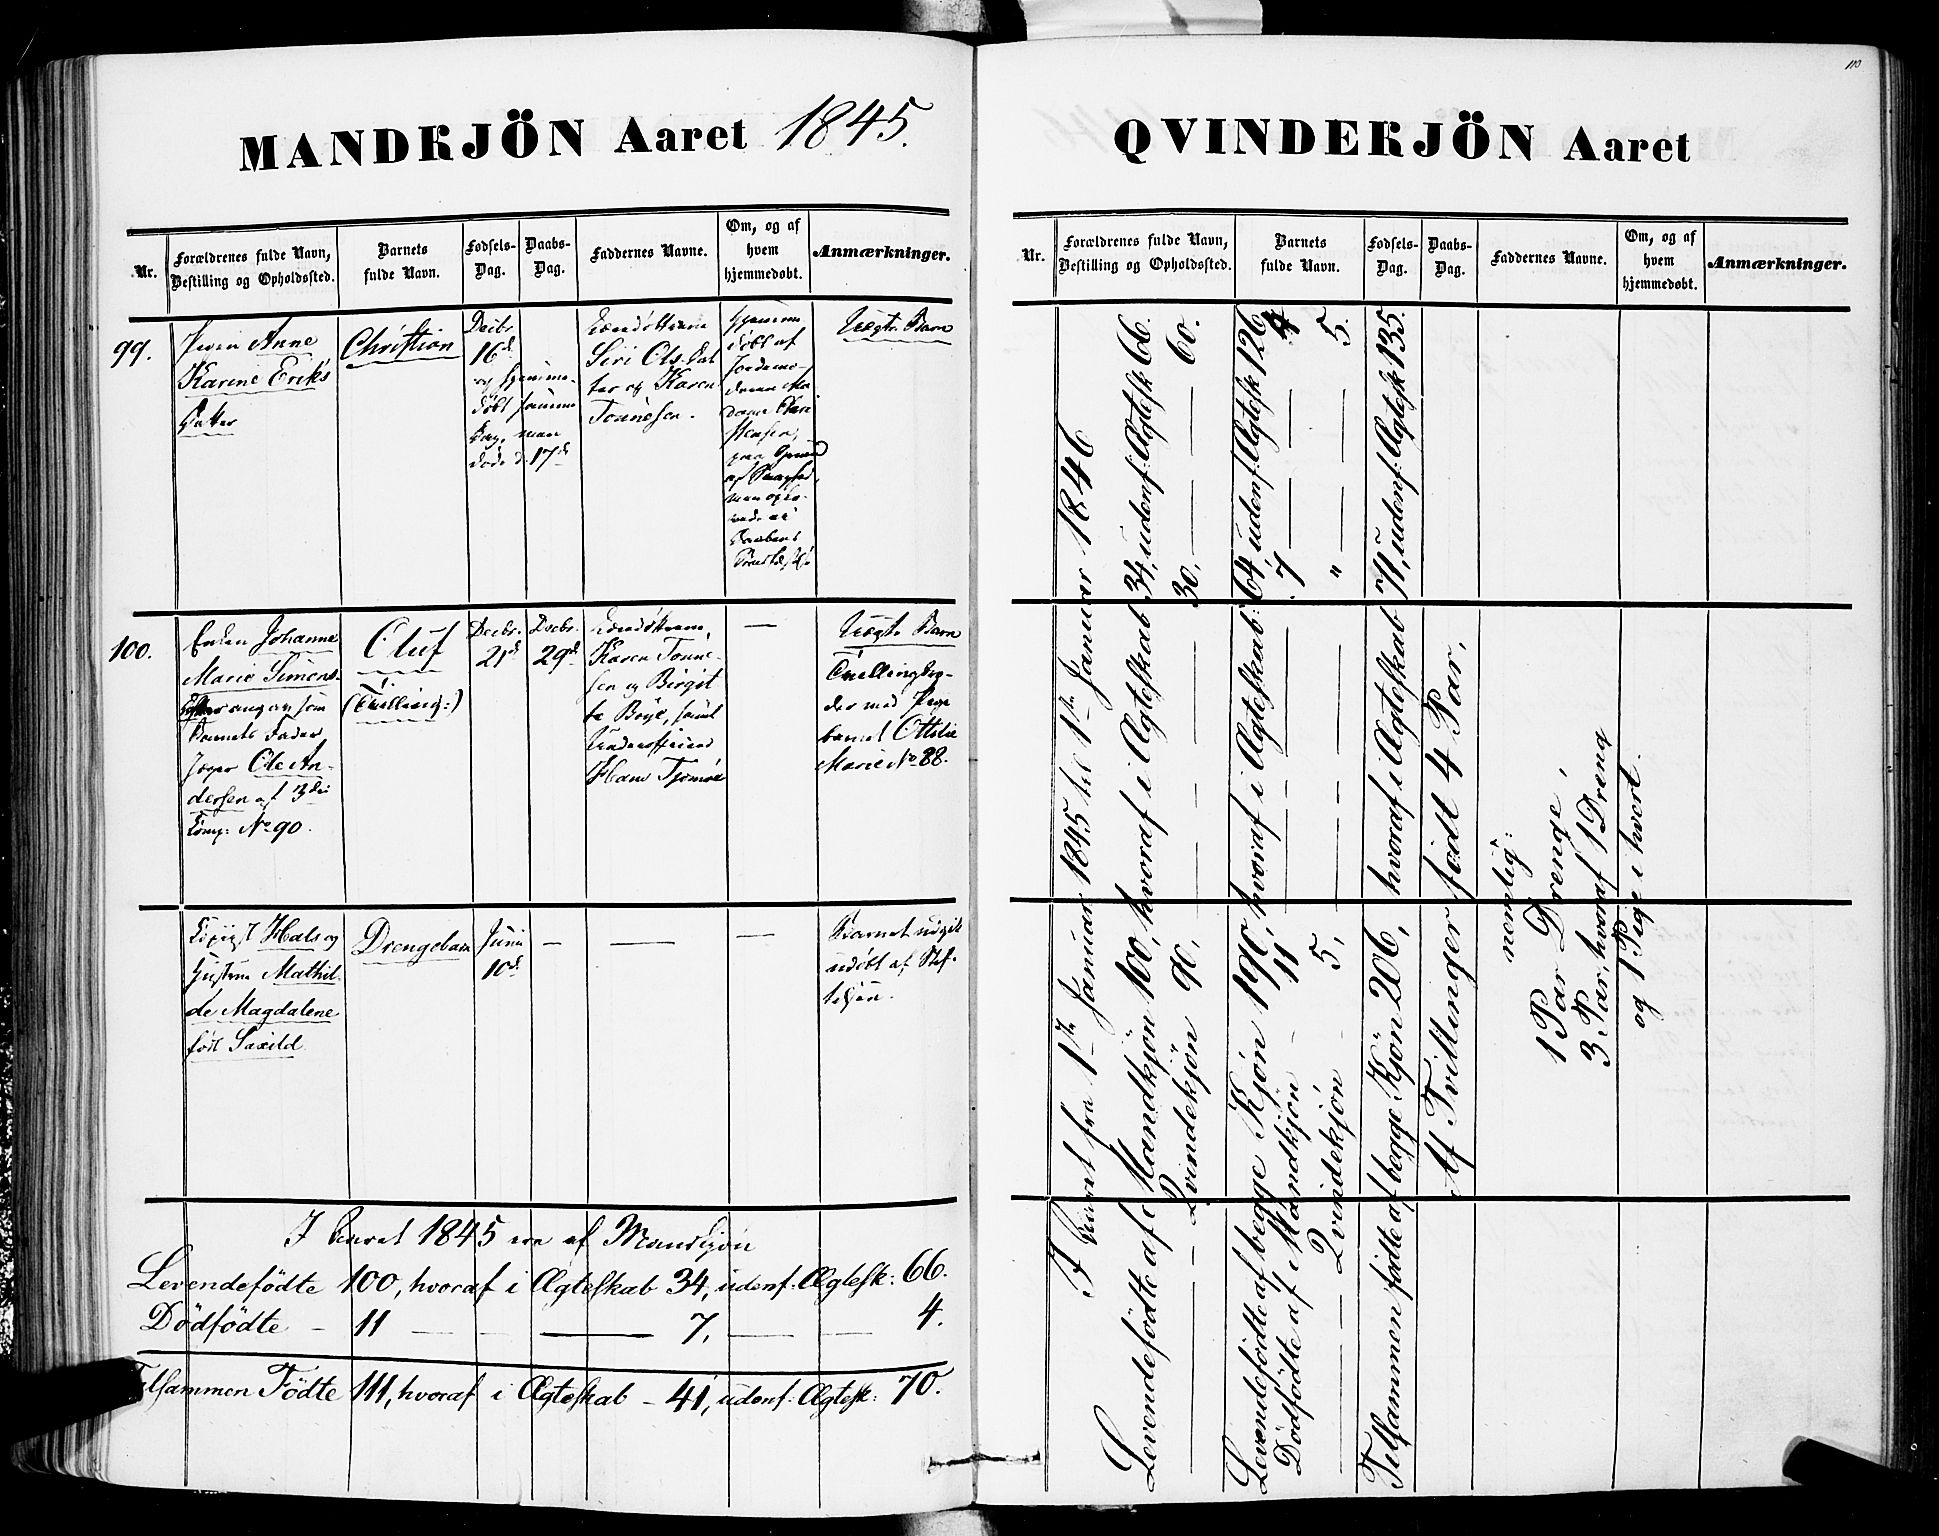 MANDKJÖN Aaret 1845.
Nr.
Forældrenes fulde Navn,
Bestilling og Opholdssted.
Barnets
fulde Navn.
Födsels-
Dag.
Daabs-
Dag.
Faddernes Navne.
Om, og af
hvem
hjemmedøbt.
Anmærkninger.
99.
Pigen Anne
Karine Eriks
Datter
Christian
Decbr.
16d
og hjemme-
døbt samme
Dag, men
døde d. 17de
Siri Ols Dat
ter og Karen
Tonnesen.
Hjemme
døbt af
Jordemo-
deren Ma
dame Chri
stensen,
paa Grund
af Svaghed,
Uægte Barn
100.
Enken Johanne
Marie Simens-
Datter angav som
Barnets Fader
Jæger Ole An-
dersen af 3die
Comp: No 90.
Oluf
(Tvilling:)
Decbr.
21d
Decbr.
29d
Karen Tonne-
sen og Birgit
te Boye, samt
Underofficeer
Hans Tjomøe
—
Uægte Barn
Tvillingbro-
der med Pige
barnet Ottilie
Marie No 88.
Hals og
Hustrue Mathil-
de Magdalene
født Saxild
Drengebarn
Junii
10d
—
—
—
Barnet udgik
udøbt af Stif-
telsen.
I Aaret 1845 ere af Mandkjön
Levendefödte 100, hvoraf i Ægteskab 34, udenf: Ægtesk: 66.
Dödfödte – 11 — — — 7, — — 4.
Tilsammen Födte 111, hvoraf i Ægteskab – 41, udenf: Ægtesk: 70.
110
QVINDEKJÖN Aaret
Nr.
Forældrenes fulde Navn,
Bestilling og Opholdssted.
Barnets
fulde Navn.
Födsels-
Dag.
Daabs-
Dag.
Faddernes Navne.
Om, og af
hvem
hjemmedøbt.
Anmærkninger.
I Aaret fra 1ste Januar 1845 til 1ste Januar 1846
Levendefödte af Mandkjön 100, hvoraf i Ægteskab 34, udenf. Ægtesk 66.
— — Qvindekjön 90, — — — 30, — — 60.
Levendefödte af begge Kjön 190, hvoraf i Ægteskab: 64 udenf. Ægtesk 126
Dödfödte af Mandkjön – 11 — — — 7 — — 4
— — Qvindekjön 5, — — — " — — 5.
Tilsammen födte af begge Kjön 206, hvoraf i Ægteskab 71, udenf. Ægtesk 135.
Af Tvillinger födt 4 Par,
nemlig:
1 Par Drenge,
3 Par, hvoraf 1 Dreng
og 1 Pige i hvert.